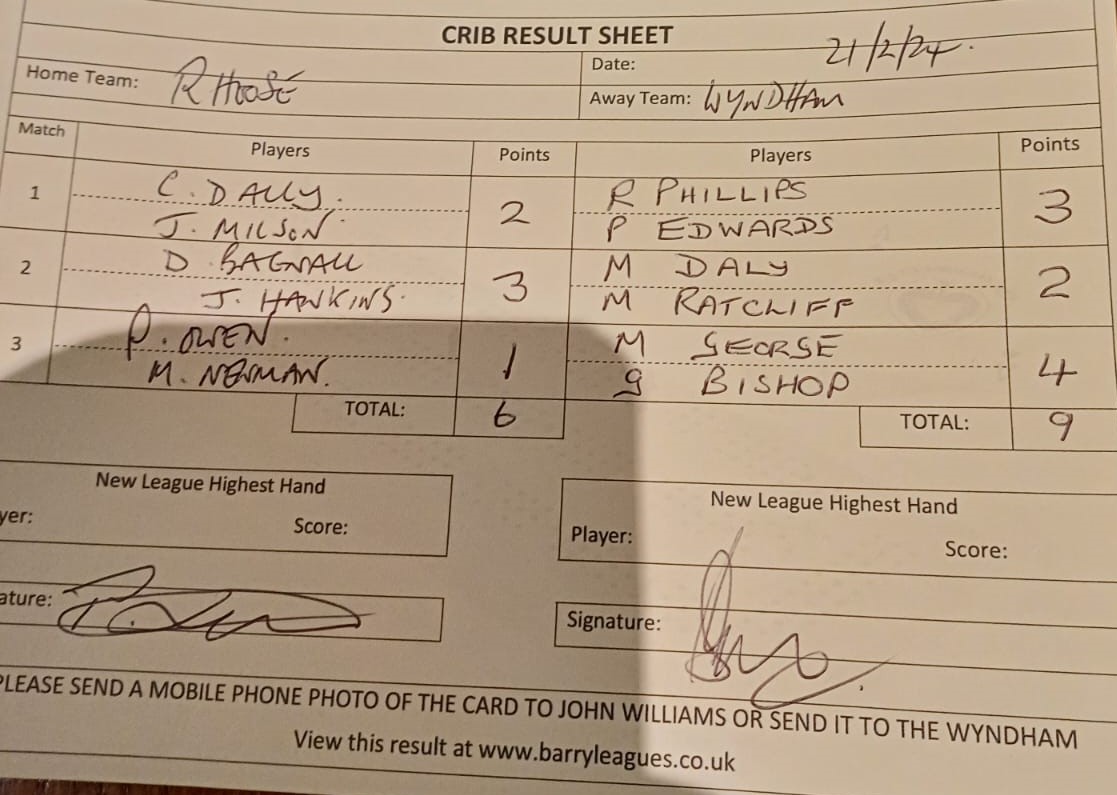 CRIB RESULT SHEET
Home Team: R HOOSE Date: 21/2/24.
Away Team: WYNDHAM
Match Players Points Players Points
1 C. DALLY. 2 R PHILLIPS 3
J. MILSON P EDWARDS
2 D. BAGNALL 3 M DALY 2
J. HAWKINS. M RATCLIFF
3 P. OWEN. 1 M GEORGE 4
M. NEWMAN. G BISHOP
TOTAL: 6 TOTAL: 9
New League Highest Hand New League Highest Hand
yer: Score: Player: Score:
ature: Signature:
PLEASE SEND A MOBILE PHONE PHOTO OF THE CARD TO JOHN WILLIAMS OR SEND IT TO THE WYNDHAM
View this result at www.barryleagues.co.uk